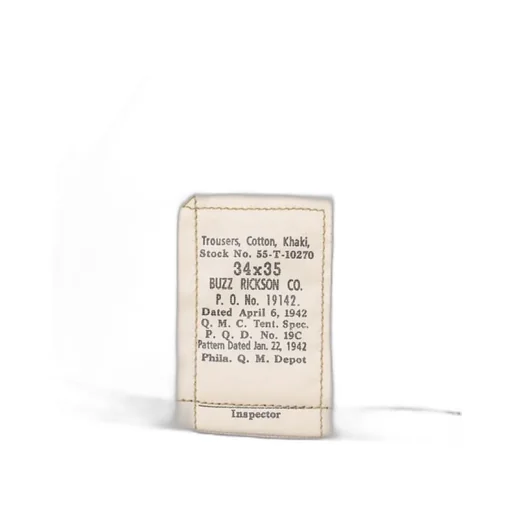 Trousers, Cotton, Khaki,
Stock No. 55-T-10270
34x35
BUZZ RICKSON CO.
P. O. No. 19142.
Dated April 6, 1942
Q. M. C. Tent. Spec.
P. Q. D. No. 19C
Pattern Dated Jan. 22, 1942
Phila. Q. M. Depot
Inspector